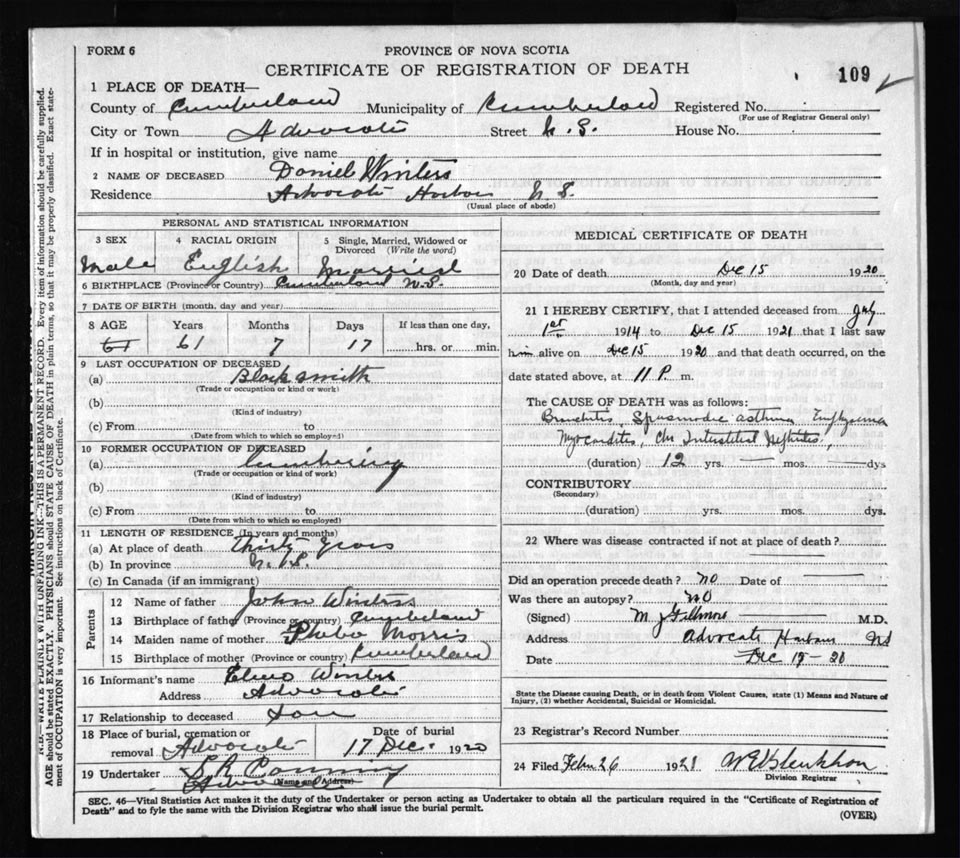 FORM 6
PROVINCE OF NOVA SCOTIA
CERTIFICATE OF REGISTRATION OF DEATH
109
1 PLACE OF DEATH—
County of Cumberland Municipality of Cumberland Registered No.
(For use of Registrar General only)
City or Town Advocate Street N. S. House No.
If in hospital or institution, give name
2 NAME OF DECEASED Daniel Winters
Residence Advocate Harbor N. S.
(Usual place of abode)
PERSONAL AND STATISTICAL INFORMATION
3 SEX 4 RACIAL ORIGIN 5 Single, Married, Widowed or
Divorced (Write the word)
Male English Married
6 BIRTHPLACE (Province or Country) Cumberland N.S.
7 DATE OF BIRTH (month, day and year)
8 AGE Years Months Days If less than one day,
61 61 7 17 hrs. or min.
9 LAST OCCUPATION OF DECEASED
(a) Blacksmith
(Trade or occupation or kind of work)
(b)
(Kind of industry)
(c) From to
(Date from which to which so employed)
10 FORMER OCCUPATION OF DECEASED
(a) Lumbering
(Trade or occupation or kind of work)
(b)
(Kind of industry)
(c) From to
(Date from which to which so employed)
11 LENGTH OF RESIDENCE (In years and months)
(a) At place of death Thirty Years
(b) In province N. S.
(c) In Canada (if an immigrant)
Parents
12 Name of father John Winters
13 Birthplace of father (Province or country) Cumberland
14 Maiden name of mother Phebe Morris
15 Birthplace of mother (Province or country) Cumberland
16 Informant's name Winters
Address Advocate
17 Relationship to deceased Son
18 Place of burial, cremation or Date of burial
removal Advocate 17 Dec. 1920
19 Undertaker
(Name and Address)
Advocate
MEDICAL CERTIFICATE OF DEATH
20 Date of death Dec 15 1920
(Month, day and year)
21 I HEREBY CERTIFY, that I attended deceased from July
1st 1914 to Dec 15 1921 that I last saw
him alive on Dec 15 1920 and that death occurred, on the
date stated above, at 11 P. m.
The CAUSE OF DEATH was as follows:
Bronchitis, Spasmodic asthma Emphysema
Myocarditis, Chr Interstitial Nephritis,
(duration) 12 yrs. — mos. — dys
CONTRIBUTORY
(Secondary)
(duration) yrs. mos. dys.
22 Where was disease contracted if not at place of death?
Did an operation precede death? no Date of
Was there an autopsy? no
(Signed) M. D.
Address Advocate Harbour NS
Date Dec 15-20
State the Disease causing Death, or in death from Violent Causes, state (1) Means and Nature of
Injury, (2) whether Accidental, Suicidal or Homicidal.
23 Registrar's Record Number
24 Filed 26 1921
Division Registrar
SEC. 46—Vital Statistics Act makes it the duty of the Undertaker or person acting as Undertaker to obtain all the particulars required in the "Certificate of Registration of
Death" and to fyle the same with the Division Registrar who shall issue the burial permit.
(OVER)
N.B.—WRITE PLAINLY WITH UNFADING INK—THIS IS A PERMANENT RECORD. Every item of information should be carefully supplied.
AGE should be stated EXACTLY. PHYSICIANS should STATE CAUSE OF DEATH in plain terms, so that it may be properly classified. Exact state-
ment of OCCUPATION is very important. See instructions on back of Certificate.